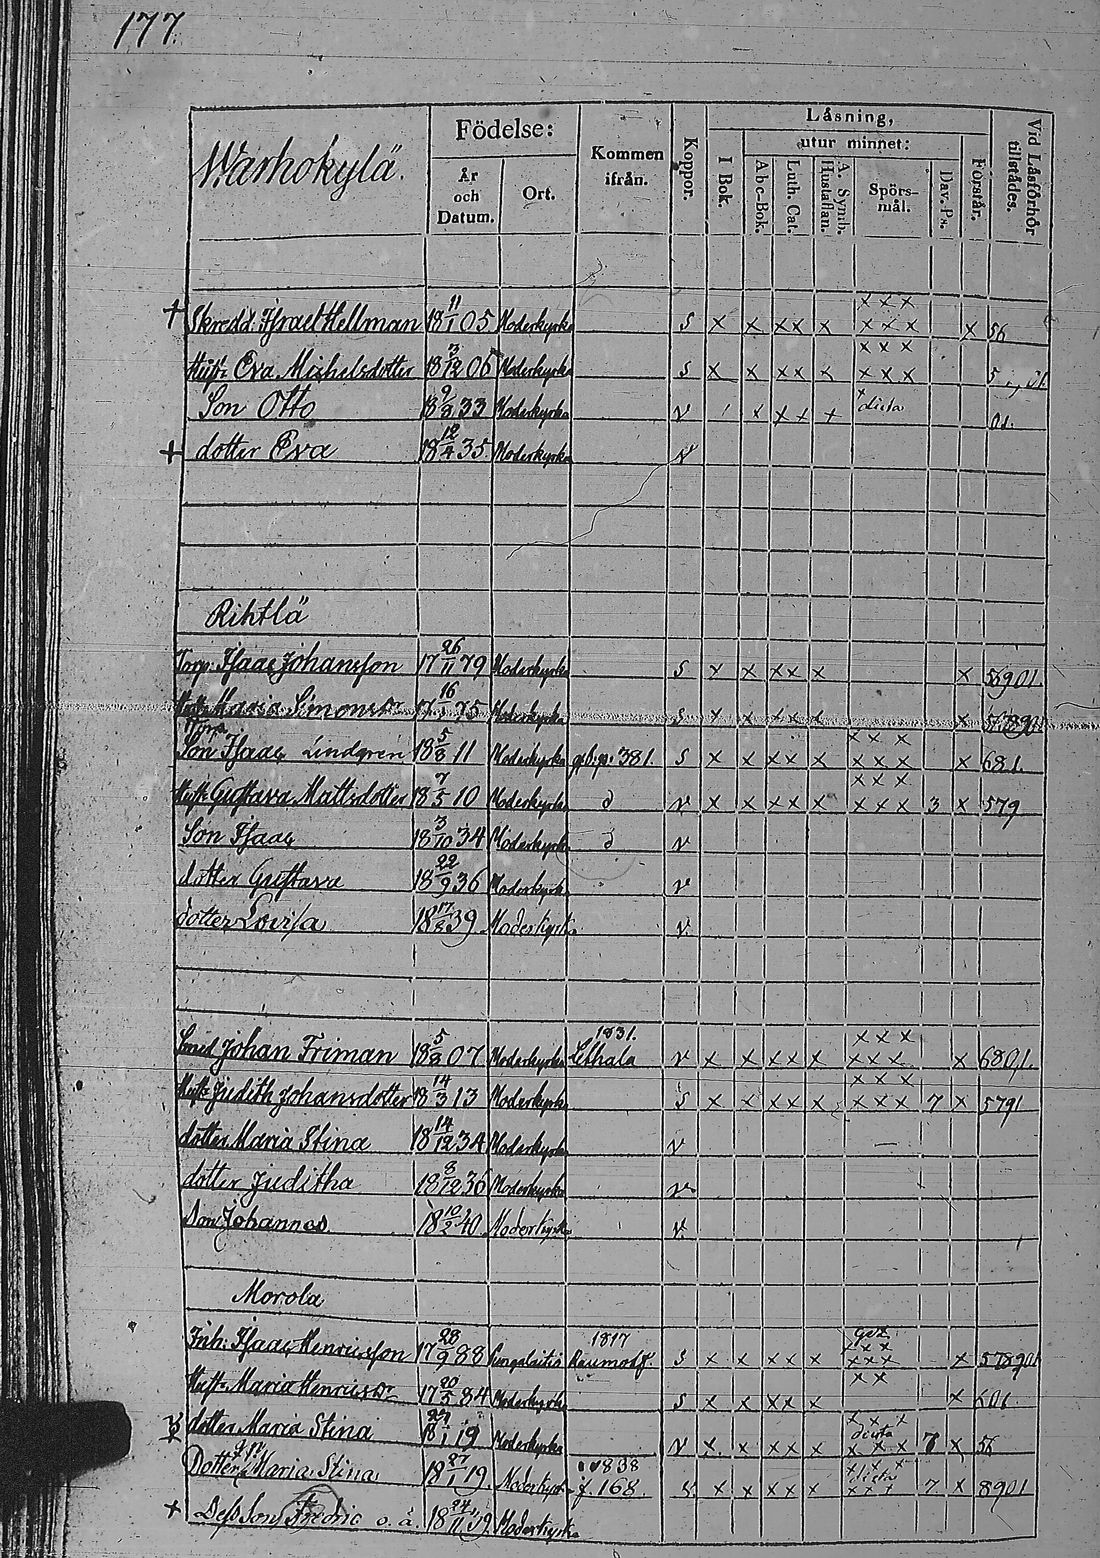 177.
Warhokylä.
Födelse:
År och Datum.
Ort.
Kommen ifrån.
Koppor.
Läsning,
I Bok.
utur minnet:
Abc-Bok.
Luth. Cat.
A. Symb. Hustaflan.
Spörsmål.
Dav. Ps.
Förstår.
Vid Läsförhör tillstädes.
x x x
+ Skredd. Israel Hellman 18 11/1 05 Moderkyrka s x x xx x x x x x 56
x x x
Hust: Eva Michelsdotter 18 3/12 06 Moderkyrka s x x xx x x x x
Son Otto 18 9/3 33 Moderkyrka v x x x x dicta 01.
+ dotter Eva 18 12/4 35 Moderkyrka v
Rihtlä
Torp. Isaac Johansson 17 26/11 79 Moderkyrka s x x xx x x 56901
Hust: Maria Simonsdr 17 16/1 75 Moderkyrka s x x xx x x
Torp.
Son Isaac Lindgren 18 5/3 11 Moderkyrka 381. s x x xx x x x x x 681
x x x
Hust: Gustava Mattsdotter 18 7/5 10 Moderkyrka d v x x xx x x x x 3 x 579
Son Isaac 18 3/10 34 Moderkyrka d v
dotter Gustava 18 22/9 36 Moderkyrka v
dotter Lovisa 18 17/8 39 Moderkyrk. v.
1831. x x x
Smed Johan Friman 18 5/2 07 Moderkyrka Lethala v x x xx x x x x x 6801.
x x x
Hust: Judith Johansdotter 18 14/3 13 Moderkyrka s x x xx x x x x 7 x 5791
dotter Maria Stina 18 14/12 34 Moderkyrka v
dotter Juditha 18 8/12 36 Moderkyrka v
Son Johannes 18 10/2 40. Moderkyrka v.
Morola
1817
Inh: Isaac Henricsson 17 28/9 88 Pungalaitio Raumo s x x xx x x x x x 578901
x x
Hust: Maria Henricsdr 17 20/5 84 Moderkyrka s x x xx x x 601
dotter Maria Stina 18 27/1 19 Moderkyrka v x. x xx x dicta x x x 7 x 56
1838
Dotter Maria Stina 18 27/1 19. Moderkyrk. f. 168. x x xx x dicta x x x 7 x 8901
+ Dess Son Fredric o. ä. 18 24/11 39 Moderkyrka